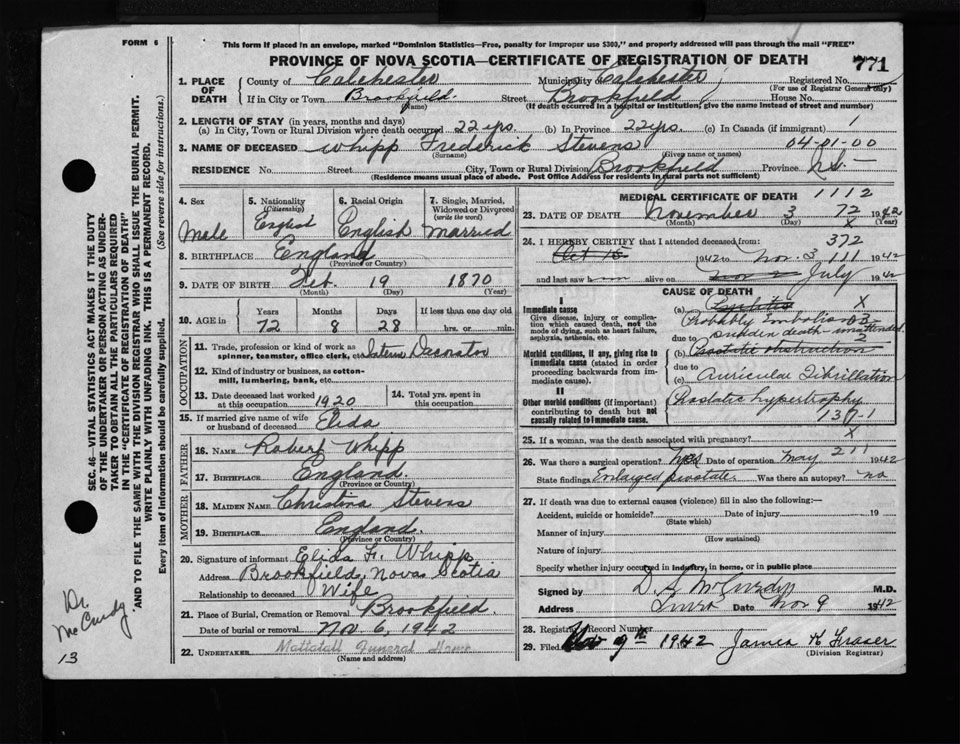 FORM 6
This form if placed in an envelope, marked "Dominion Statistics—Free, penalty for improper use $300," and properly addressed will pass through the mail "FREE"
PROVINCE OF NOVA SCOTIA—CERTIFICATE OF REGISTRATION OF DEATH
771
1. PLACE OF DEATH County of Colchester Municipality of Colchester Registered No.
(For use of Registrar General only)
If in City or Town Brookfield (Name) Street Brookfield House No.
(If death occurred in a hospital or institution, give the name instead of street and number)
2. LENGTH OF STAY (in years, months and days)
(a) In City, Town or Rural Division where death occurred 22 yrs. (b) In Province 22 yrs. (c) In Canada (if immigrant) 1
3. NAME OF DECEASED Whipp Frederick Stevens 04-01-00
(Surname) (Given name or names)
RESIDENCE No. Street City, Town or Rural Division Brookfield Province N.S.
(Residence means usual place of abode. Post Office Address for residents in rural parts not sufficient)
4. Sex Male
5. Nationality (Citizenship) English
6. Racial Origin English
7. Single, Married, Widowed or Divorced (write the word) Married
8. BIRTHPLACE England
(Province or Country)
9. DATE OF BIRTH Feb. 19 1870
(Month) (Day) (Year)
10. AGE in Years 72 Months 8 Days 28 If less than one day old hrs. or min.
OCCUPATION
11. Trade, profession or kind of work as spinner, teamster, office clerk, etc. Interior Decorator
12. Kind of industry or business, as cotton-mill, lumbering, bank, etc.
13. Date deceased last worked at this occupation 1920
14. Total yrs. spent in this occupation
15. If married give name of wife or husband of deceased Elida
FATHER
16. NAME Robert Whipp
17. BIRTHPLACE England
(Province or Country)
MOTHER
18. MAIDEN NAME Christina Stevens
19. BIRTHPLACE England.
(Province or Country)
20. Signature of informant Elida F. Whipp
Address Brookfield, Nova Scotia
Relationship to deceased Wife
21. Place of Burial, Cremation or Removal Brookfield.
Date of burial or removal Nov 6, 1942
22. UNDERTAKER Mattatall Funeral Home
(Name and address)
MEDICAL CERTIFICATE OF DEATH 1112
23. DATE OF DEATH November 3 72 1942
(Month) (Day) X (Year)
24. I HEREBY CERTIFY that I attended deceased from: 372
Oct 15 1942 to Nov. 3 111 1942
and last saw h m alive on Nov 2 July 1942
CAUSE OF DEATH
I
Immediate cause
Give disease, injury, or complication which caused death, not the mode of dying, such as heart failure, asphyxia, asthenia, etc.
(a) X
Probably Embolism 03
due to Sudden death - unattended. 2
Morbid conditions, if any, giving rise to immediate cause (stated in order proceeding backwards from immediate cause).
(b) Prostatic obstruction
due to
(c) Auricular Fibrillation
II
Other morbid conditions (if important) contributing to death but not causally related to immediate cause.
Prostatic hypertrophy
137-1
25. If a woman, was the death associated with pregnancy? X
26. Was there a surgical operation? Yes Date of operation May 211 1942
State findings Enlarged prostate. Was there an autopsy? no
27. If death was due to external causes (violence) fill in also the following:—
Accident, suicide or homicide? Date of injury 19
(State which)
Manner of injury
(How sustained)
Nature of injury
Specify whether injury occurred in industry, in home, or in public place
Signed by D S McCurdy M.D.
Address Truro Date Nov 9 1942
28. Registrar's Record Number
29. Filed Nov 9th 1942 James K Fraser
(Division Registrar)
SEC. 46—VITAL STATISTICS ACT MAKES IT THE DUTY OF THE UNDERTAKER OR PERSON ACTING AS UNDERTAKER TO OBTAIN ALL THE PARTICULARS REQUIRED IN THE "CERTIFICATE OF REGISTRATION OF DEATH" AND TO FILE THE SAME WITH THE DIVISION REGISTRAR WHO SHALL ISSUE THE BURIAL PERMIT.
WRITE PLAINLY WITH UNFADING INK. THIS IS A PERMANENT RECORD.
Every item of information should be carefully supplied. (See reverse side for instructions.)
Dr. McCurdy
13